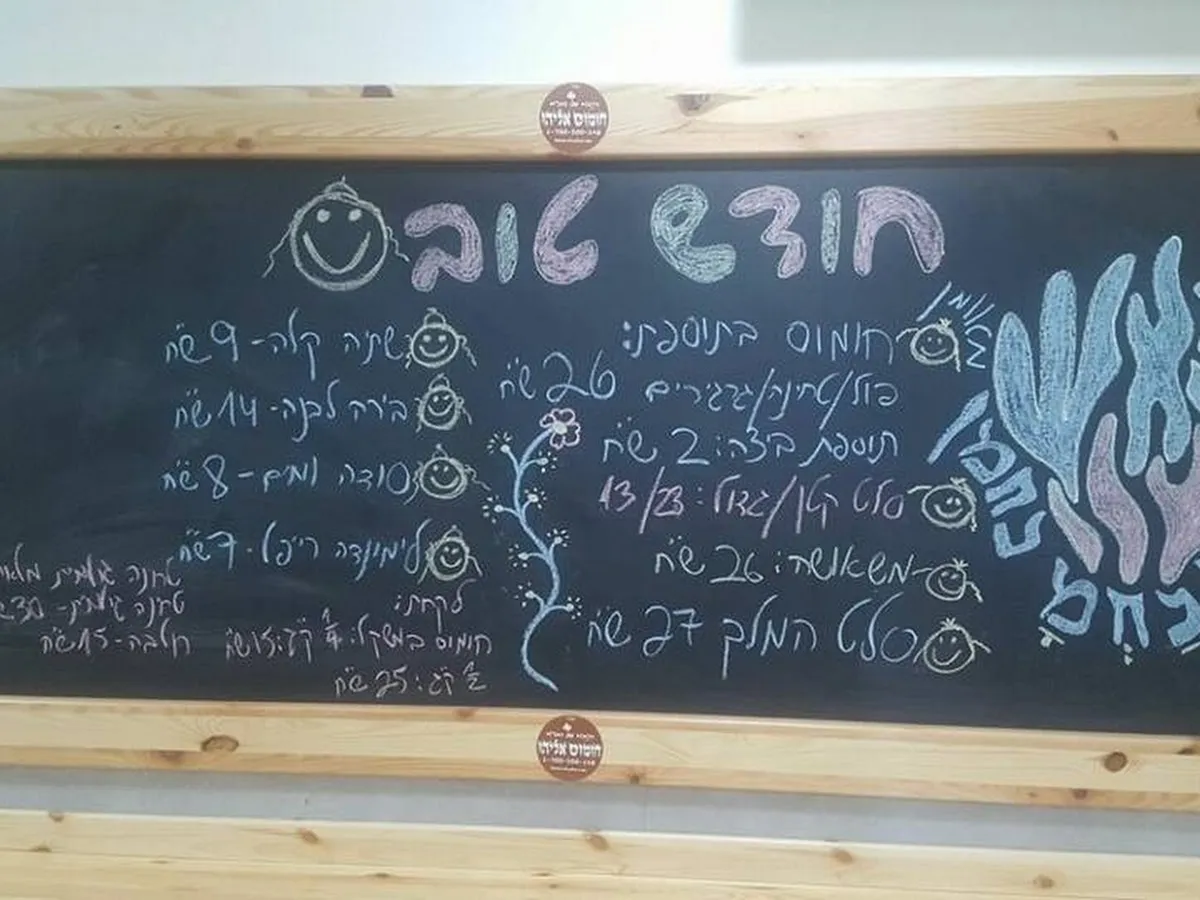 חומוס אליהו
1-700-500-148
חודש טוב
חומוס בתוספת:
פול/טחינה/גרגירים 26 ש"ח
תוספת ביצה: 2 ש"ח
סלט קטן/גדול: 13/23
משאושה: 26 ש"ח
סלט המלך 27 ש"ח
שתיה קלה - 9 ש"ח
בירה לבנה - 14 ש"ח
סודה ומים - 8 ש"ח
לימונדה ריפל - 7 ש"ח
לקחת:
חומוס במשקל: 1/4 ק"ג: 15 ש"ח
1/2 ק"ג: 25 ש"ח
טחנה גולמית מלאה
טחינה גולמית - 30
חלבה - 15 ש"ח
נ נח
חומוס אליהו